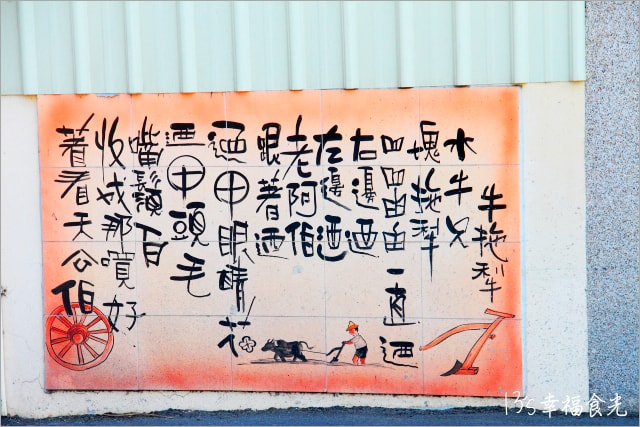 牛拖犁
水牛兄
塊拖犁
一直迺
右邊迺
左邊迺
老阿伯
跟著迺
迺甲眼睛花
迺甲頭毛
嘴鬚白
收成那好
著看天公伯
135幸福食光